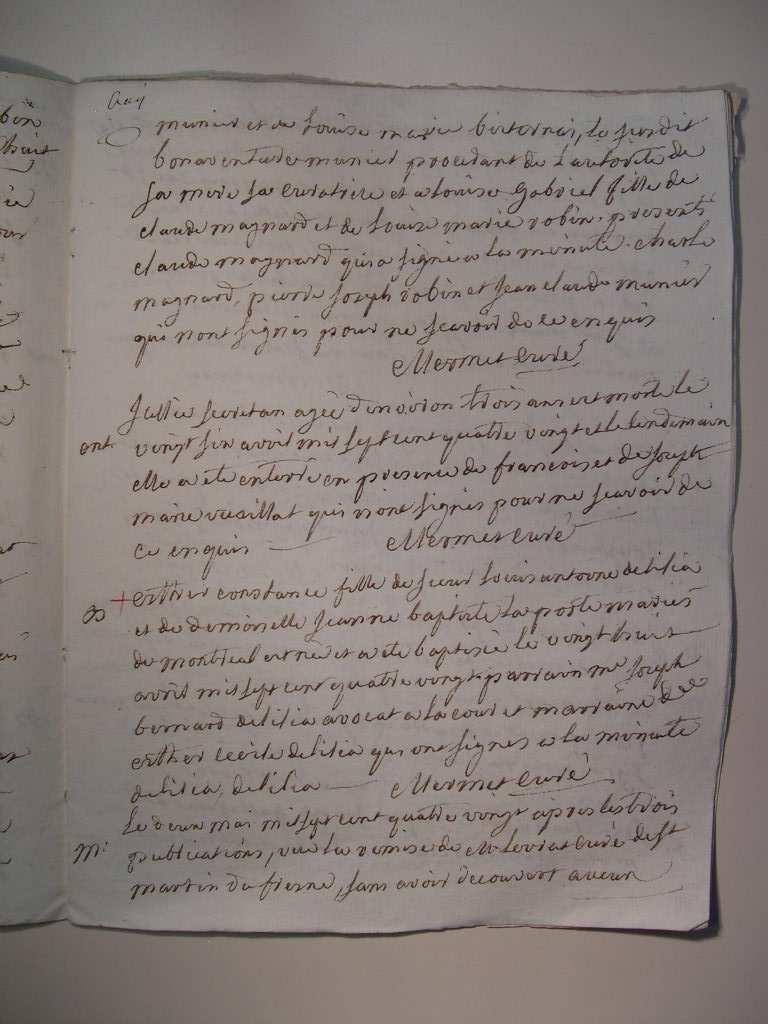 munier et de Louise marie la susdit
bonaventure munier procedant de Lautorité de
sa mere sa curatrice et a Louise gabriel fille de
claude magnard et de Louise marie robin. presents
claude magnard qui a signé a la minute. charle
magnard, pierre joseph robin et jean claude munier
qui nont signés pour ne scavoir de ce enquis
Mermet curé
ent.
jullie secretan agée denviron trois ans est morte le
vingt six avril mil sept cent quatre vingt et le lendemain
elle a ete enterré en presence de francois et de joseph
marie vuaillat qui nont signés pour ne scavoir de
ce enquis Mermet curé
B + esther constance fille de sieur Louis antoine delilia
et de demoiselle jeanne baptiste La poste mariés
de montreal est née et a ete baptisée le vingt huit
avril mil sept cent quatre vingt. parrain mr joseph
bernard delilia avocat a la cour et marraine dlle
esther cecile delilia qui ont signes a la minute
delilia, delilia Mermet curé
Le deux mai mil sept cent quatre vingt apres les trois
m: publications, vue la remise de Mr Levrat curé de st
martin du fresne, sans avoir decouvert aucun